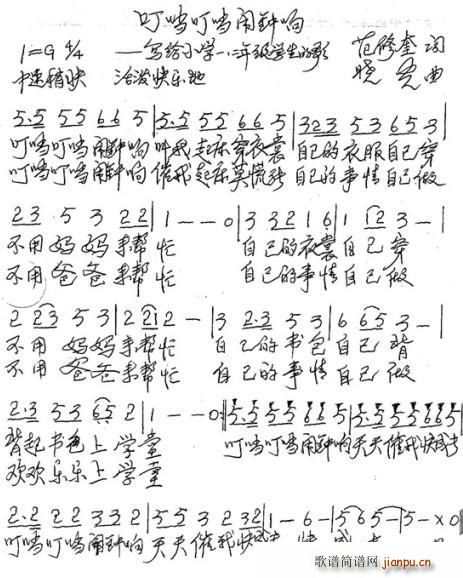 叮当叮当闹钟响
1=G 4/4 ——写给小学一、二年级学生的歌 范修奎 词
中速稍快 活泼快乐地 晓 亮 曲
5.5 55 66 5|5.5 55 66 5|323 53 65 3|
叮当叮当闹钟响 叫我起床穿衣裳 自己的衣服自己穿
叮当叮当闹钟响 催我起床莫慌张 自己的事情自己做
23 5 3 22|1 - - 0|3 32 1 6|1 12 3 -|
不用妈妈来帮忙 自己的衣裳自己穿
不用爸爸来帮忙 自己的事情自己做
2 23 5 3|2 21 2 -|3 2.3 5 3|6 65 3 -|
不用妈妈来帮忙 自己的书包自己背
不用爸爸来帮忙 自己的事情自己做
2.3 53 65 2|1 - - 0|5.5 55 66 5|5.5 55 66 5|
背起书包上学堂 叮当叮当闹钟响天天催我快成长
欢欢乐乐上学堂
2.2 22 33 2|55 3 2 32|1 - 6 -|5 6 5 -|5 - X 0|
叮当叮当闹钟响 天天催我快成长 快 成
歌谱简谱网
jianpu.cn